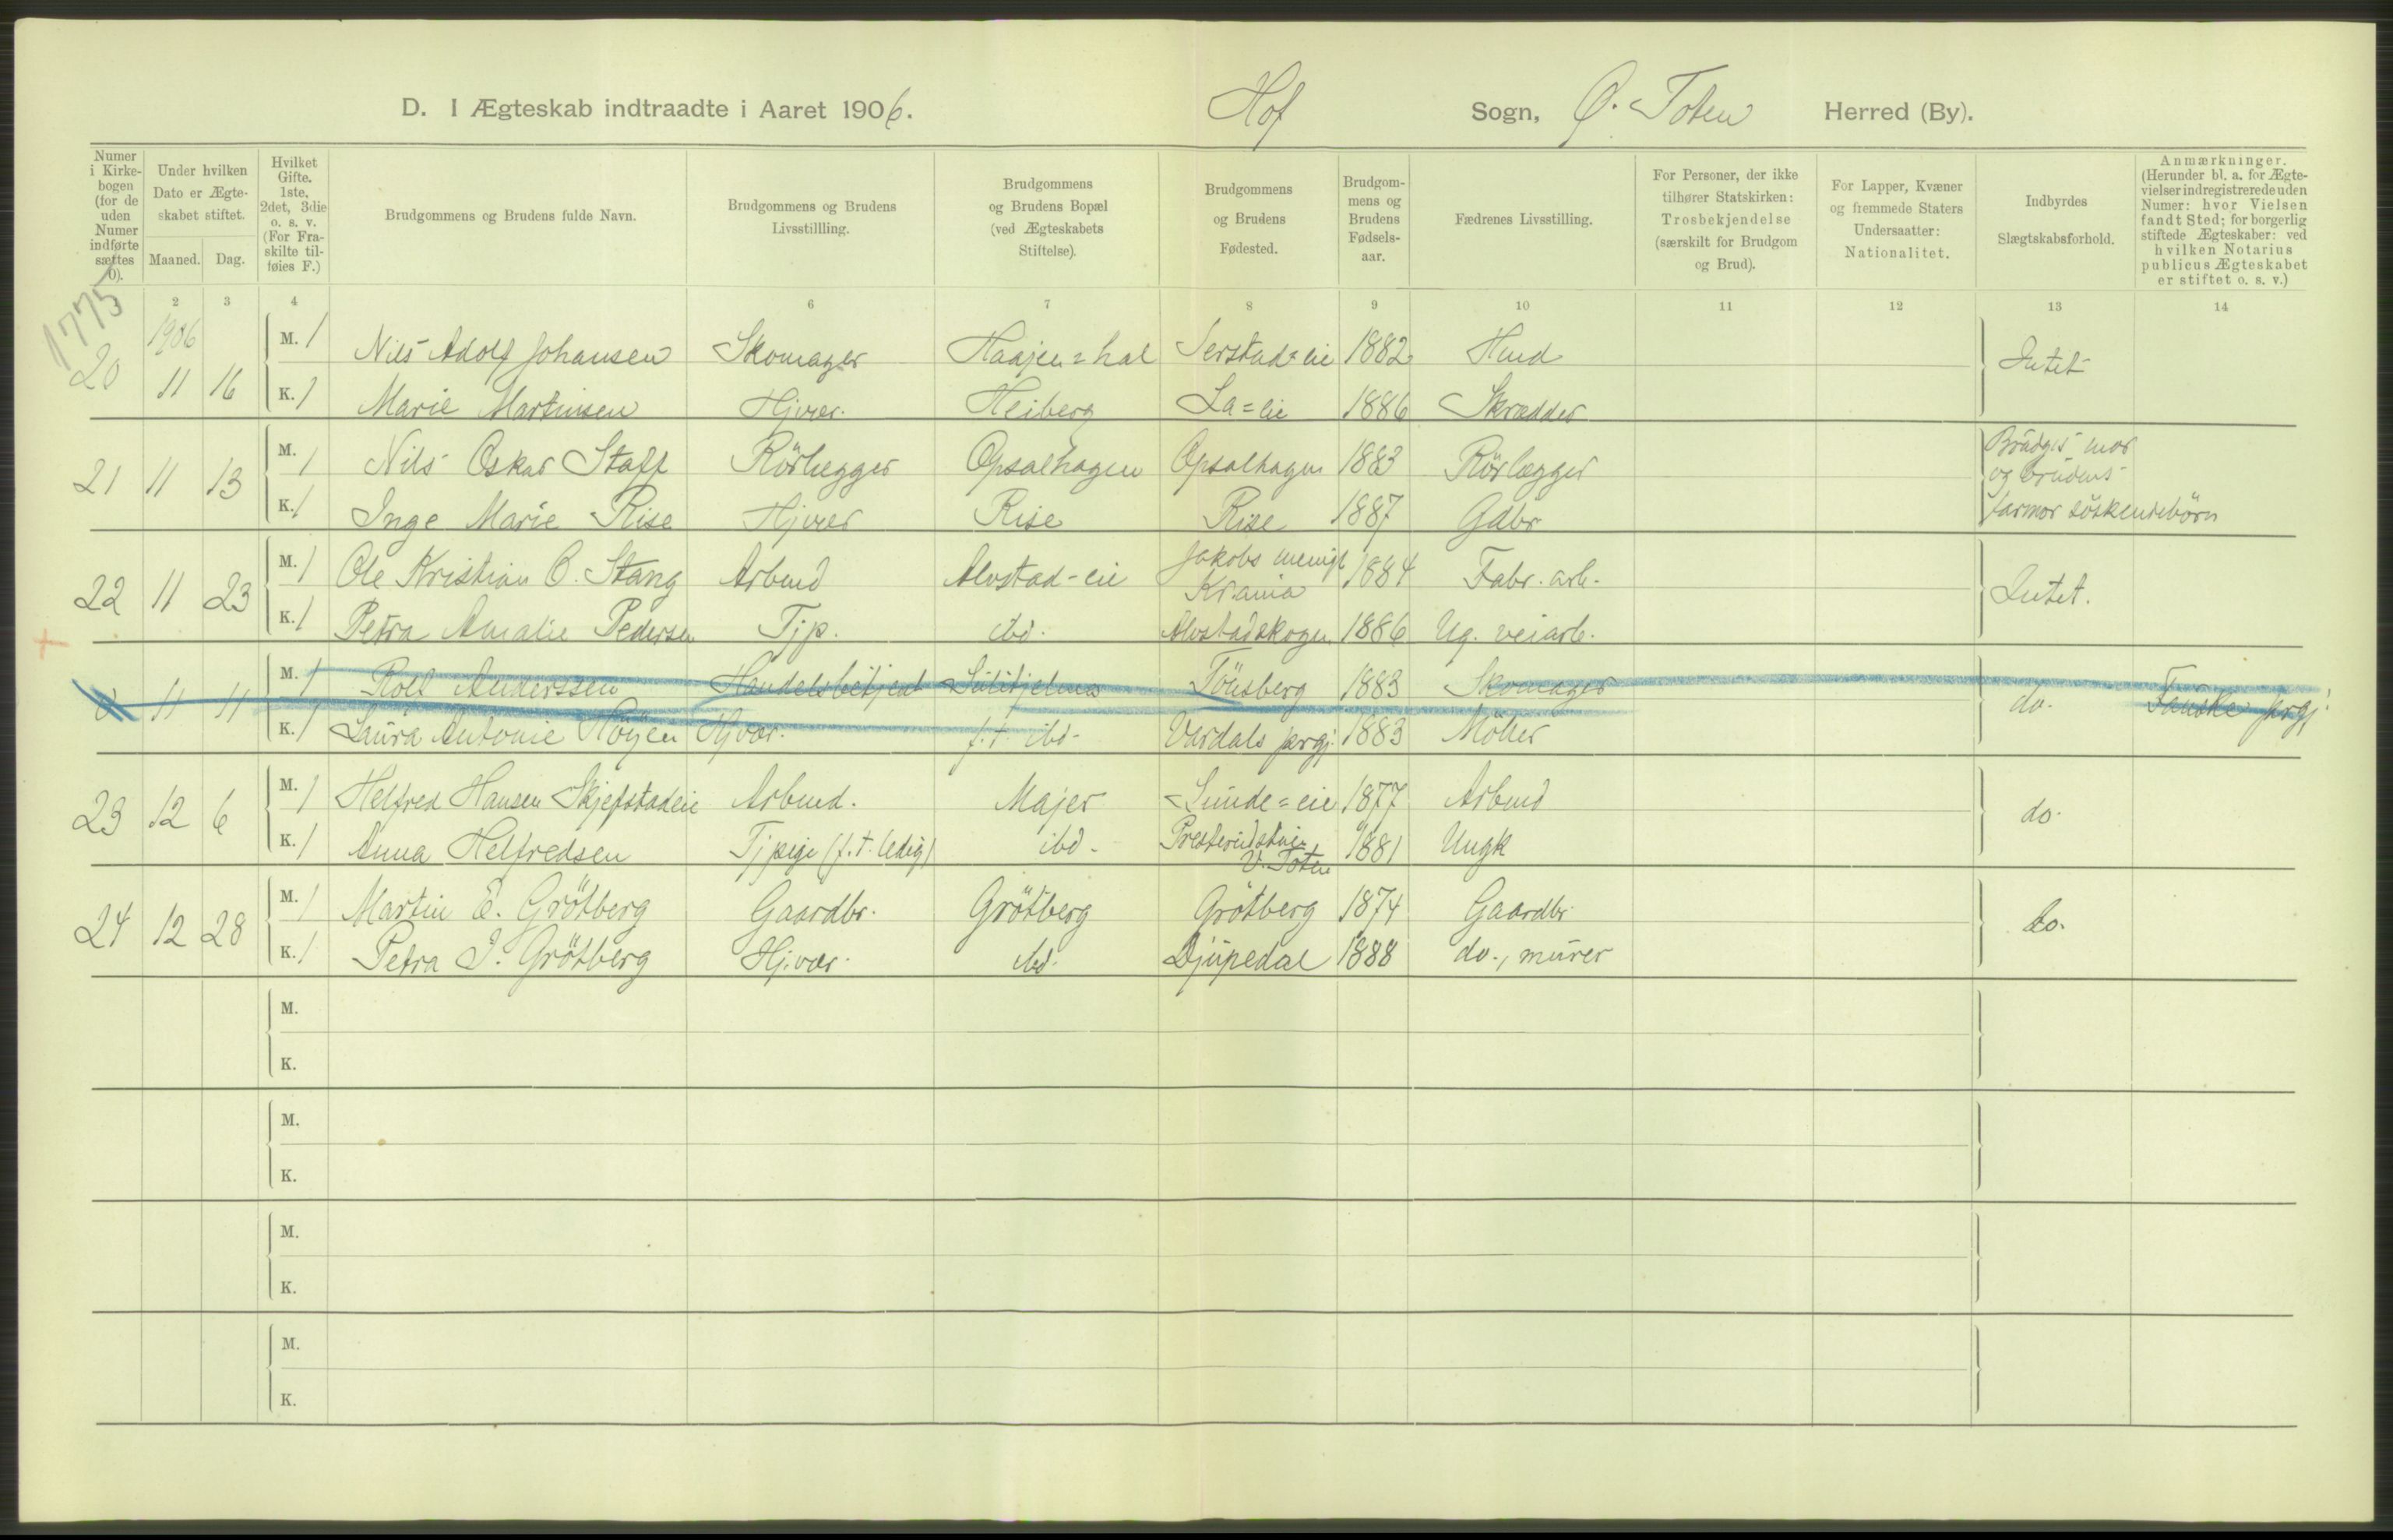 D. I Ægteskab indtraadte i Aaret 1906. Hof Sogn, Ø. Toten Herred (By).
Numer i Kirkebogen (for de uden Numer indførte sættes 0).
Under hvilken Dato er Ægteskabet stiftet.
Maaned. Dag.
Hvilket Gifte. 1ste, 2det, 3die o. s. v. (For Fraskilte tilføies F.)
Brudgommens og Brudens fulde Navn.
Brudgommens og Brudens Livsstillling.
Brudgommens og Brudens Bopæl (ved Ægteskabets Stiftelse).
Brudgommens og Brudens Fødested.
Brudgommens og Brudens Fødselsaar.
Fædrenes Livsstilling.
For Personer, der ikke tilhører Statskirken: Trosbekjendelse (særskilt for Brudgom og Brud).
For Lapper, Kvæner og fremmede Staters Undersaatter: Nationalitet.
Indbyrdes Slægtskabsforhold.
Anmærkninger. (Herunder bl. a. for Ægtevielser indregistrerede uden Numer: hvor Vielsen fandt Sted; for borgerlig stiftede Ægteskaber: ved hvilken Notarius publicus Ægteskabet er stiftet o. s. v.)
2 3 4 6 7 8 9 10 11 12 13 14
1775
1906
M. 1 Nils Adolf Johansen Skomager Haajen=hal Serstad=eie 1882 Hmd
20 11 16 Intet
K. 1 Marie Martinsen Hjvær. Heiberg La=eie 1886 Skrædder
M. 1 Nils Oskar Staff Rörlegger Opsalhagen Opsalhagen 1883 Rörlægger
21 11 13 Brudgs mor og brudens farmor söskendebörn
K. 1 Inge Marie Rise Hjvær Rise Rise 1887 Gdbr
M. 1 Ole Kristian O. Stang Arbmd Alvstad-eie Jakobs menigh Krania 1884 Fabr. arb.
22 11 23 Intet.
K. 1 Petra Amalie Pedersen Tjp. ibd. Alvstadskogen 1886 Ug. veiarb.
M. 1 Rolf Anderssen Handelsbetjent Sulitjelma Tönsberg 1883 Skomager
0 11 11 do. Fauske prgj.
K. 1 Laura Antonie Höyen Hjvær. f.t. ibd. Vardals prgj. 1883 Möller
M. 1 Helfred Hansen Skjefstadeie Arbmd. Majer Sunde=eie 1877 Arbmd
23 12 6 do.
K. 1 Anna Helfredsen Tjpige (f.t. ledig) ibd. V. Toten 1881 Ungk
M. 1 Martin E. Grötberg Gaardbr. Grötberg Grötberg 1874 Gaardbr
24 12 28 do.
K. 1 Petra J. Grötberg Hjvær. ibd. Djupedal 1888 do., murer
M.
K.
M.
K.
M.
K.
M.
K.